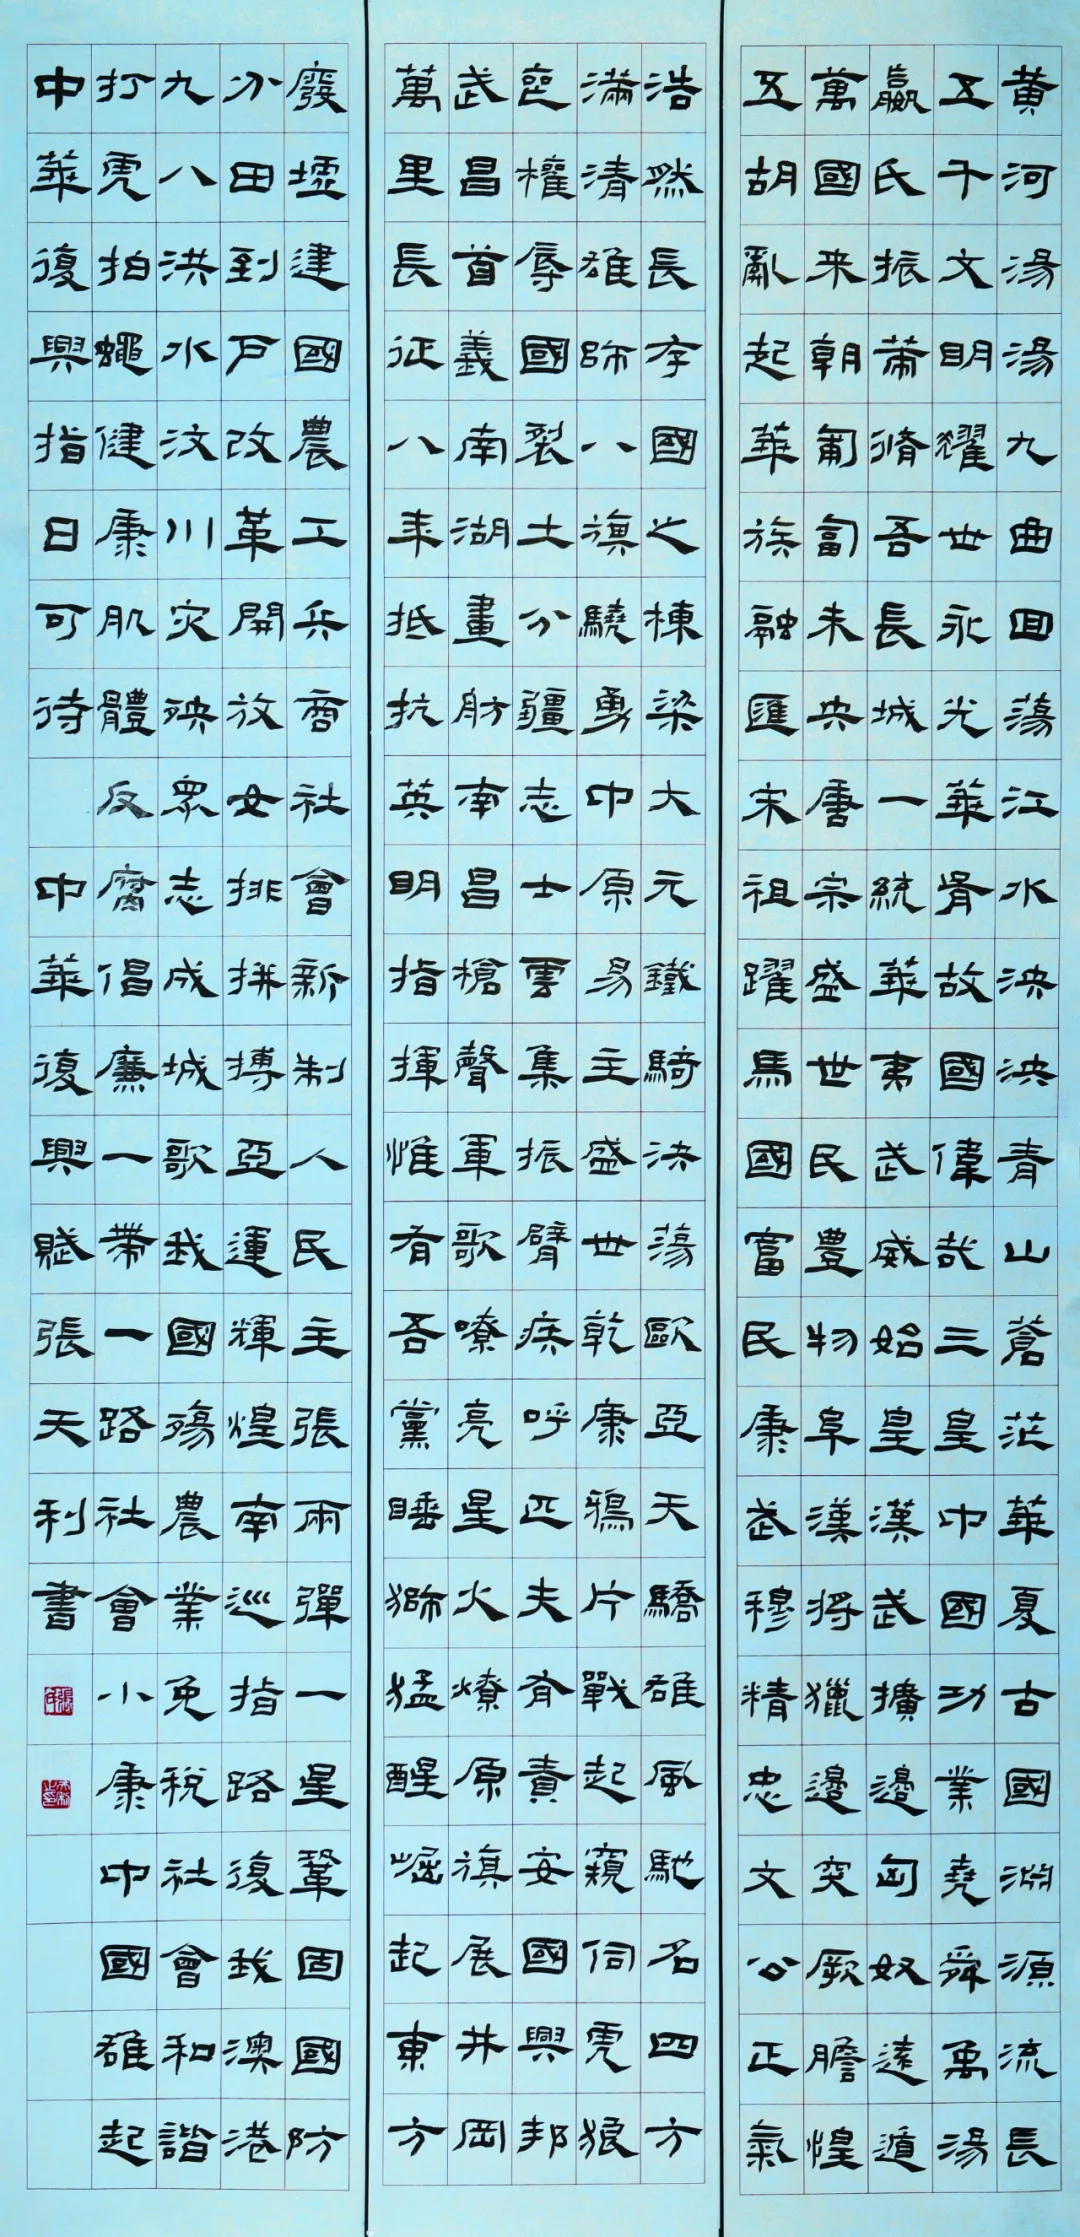 黄河湯湯九曲回蕩江水泱泱青山蒼茫華夏古國淵源流長
五千文明耀世永光華胥故國偉哉三皇中國功業堯舜禹湯
嬴氏振蕭脩吾長城一統華夷武威始皇漢武擴邊匈奴遠遁
萬國来朝匍匐未央唐宗盛世民豊物阜漢将獵邊突厥膽惶
五胡亂起華族融匯宋祖躍馬國富民康武穆精忠文公正氣
浩然長存國之棟梁大元鐵騎決蕩歐亞天驕雄風馳名四方
滿清雄師八旗驍勇中原易主盛世乾康鴉片戰起窺伺虎狼
喪權辱國裂土分疆志士雲集振臂疾呼匹夫有責安國興邦
武昌首義南湖畫舫南昌槍聲軍歌嘹亮星火燎原旗展井岡
萬里長征八年抵抗英明指揮惟有吾黨睡獅猛醒崛起東方
廢墟建國農工兵商社會新制人民主張兩彈一星鞏固國防
分田到戶改革開放女排拼搏亞運輝煌南巡指路復我澳港
九八洪水汶川灾殃眾志成城歌我國殤農業免税社會和諧
打虎拍蠅健康肌體反腐倡廉一帶一路社會小康中國雄起
中華復興指日可待 中華復興賦張天利書